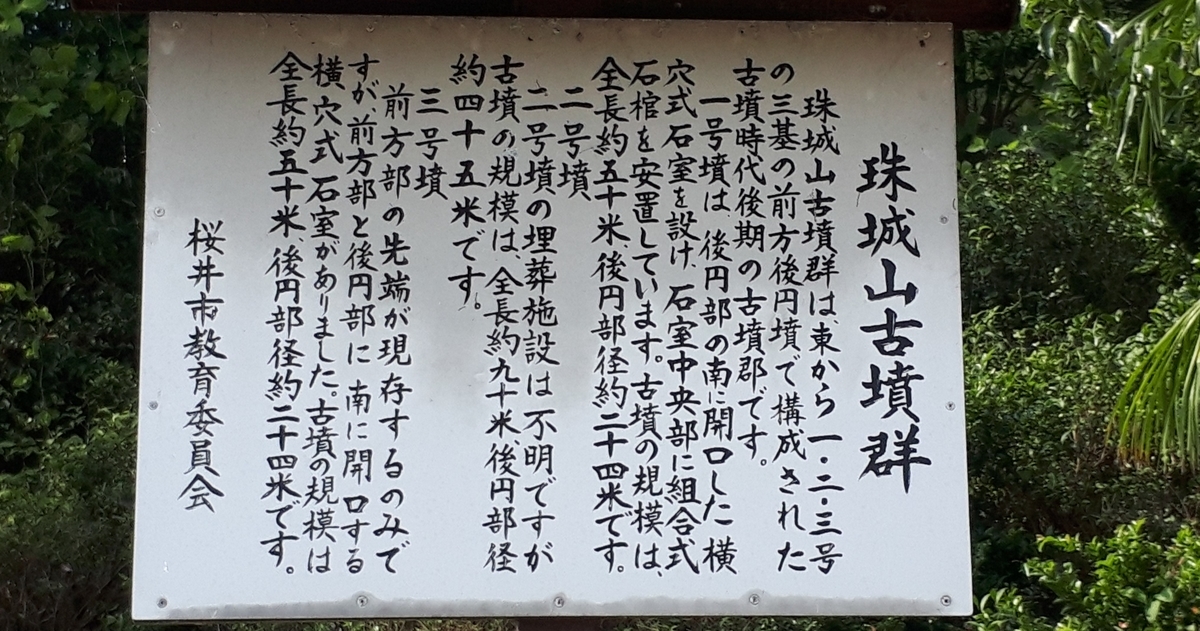 珠城山古墳群
珠城山古墳群は東から一・二・三号
の三基の前方後円墳で構成された
古墳時代後期の古墳郡です。
一号墳は、後円部の南に開口した横
穴式石室を設け、石室中央部に組合式
石棺を安置しています。古墳の規模は、
全長約五十米、後円部径約二十四米です。
二号墳
二号墳の埋葬施設は不明ですが
古墳の規模は、全長約九十米、後円部径
約四十五米です。
三号墳
前方部の先端が現存するのみで
すが、前方部と後円部に南に開口する
横穴式石室がありました。古墳の規模は
全長約五十米、後円部径約二十四米です。
桜井市教育委員会